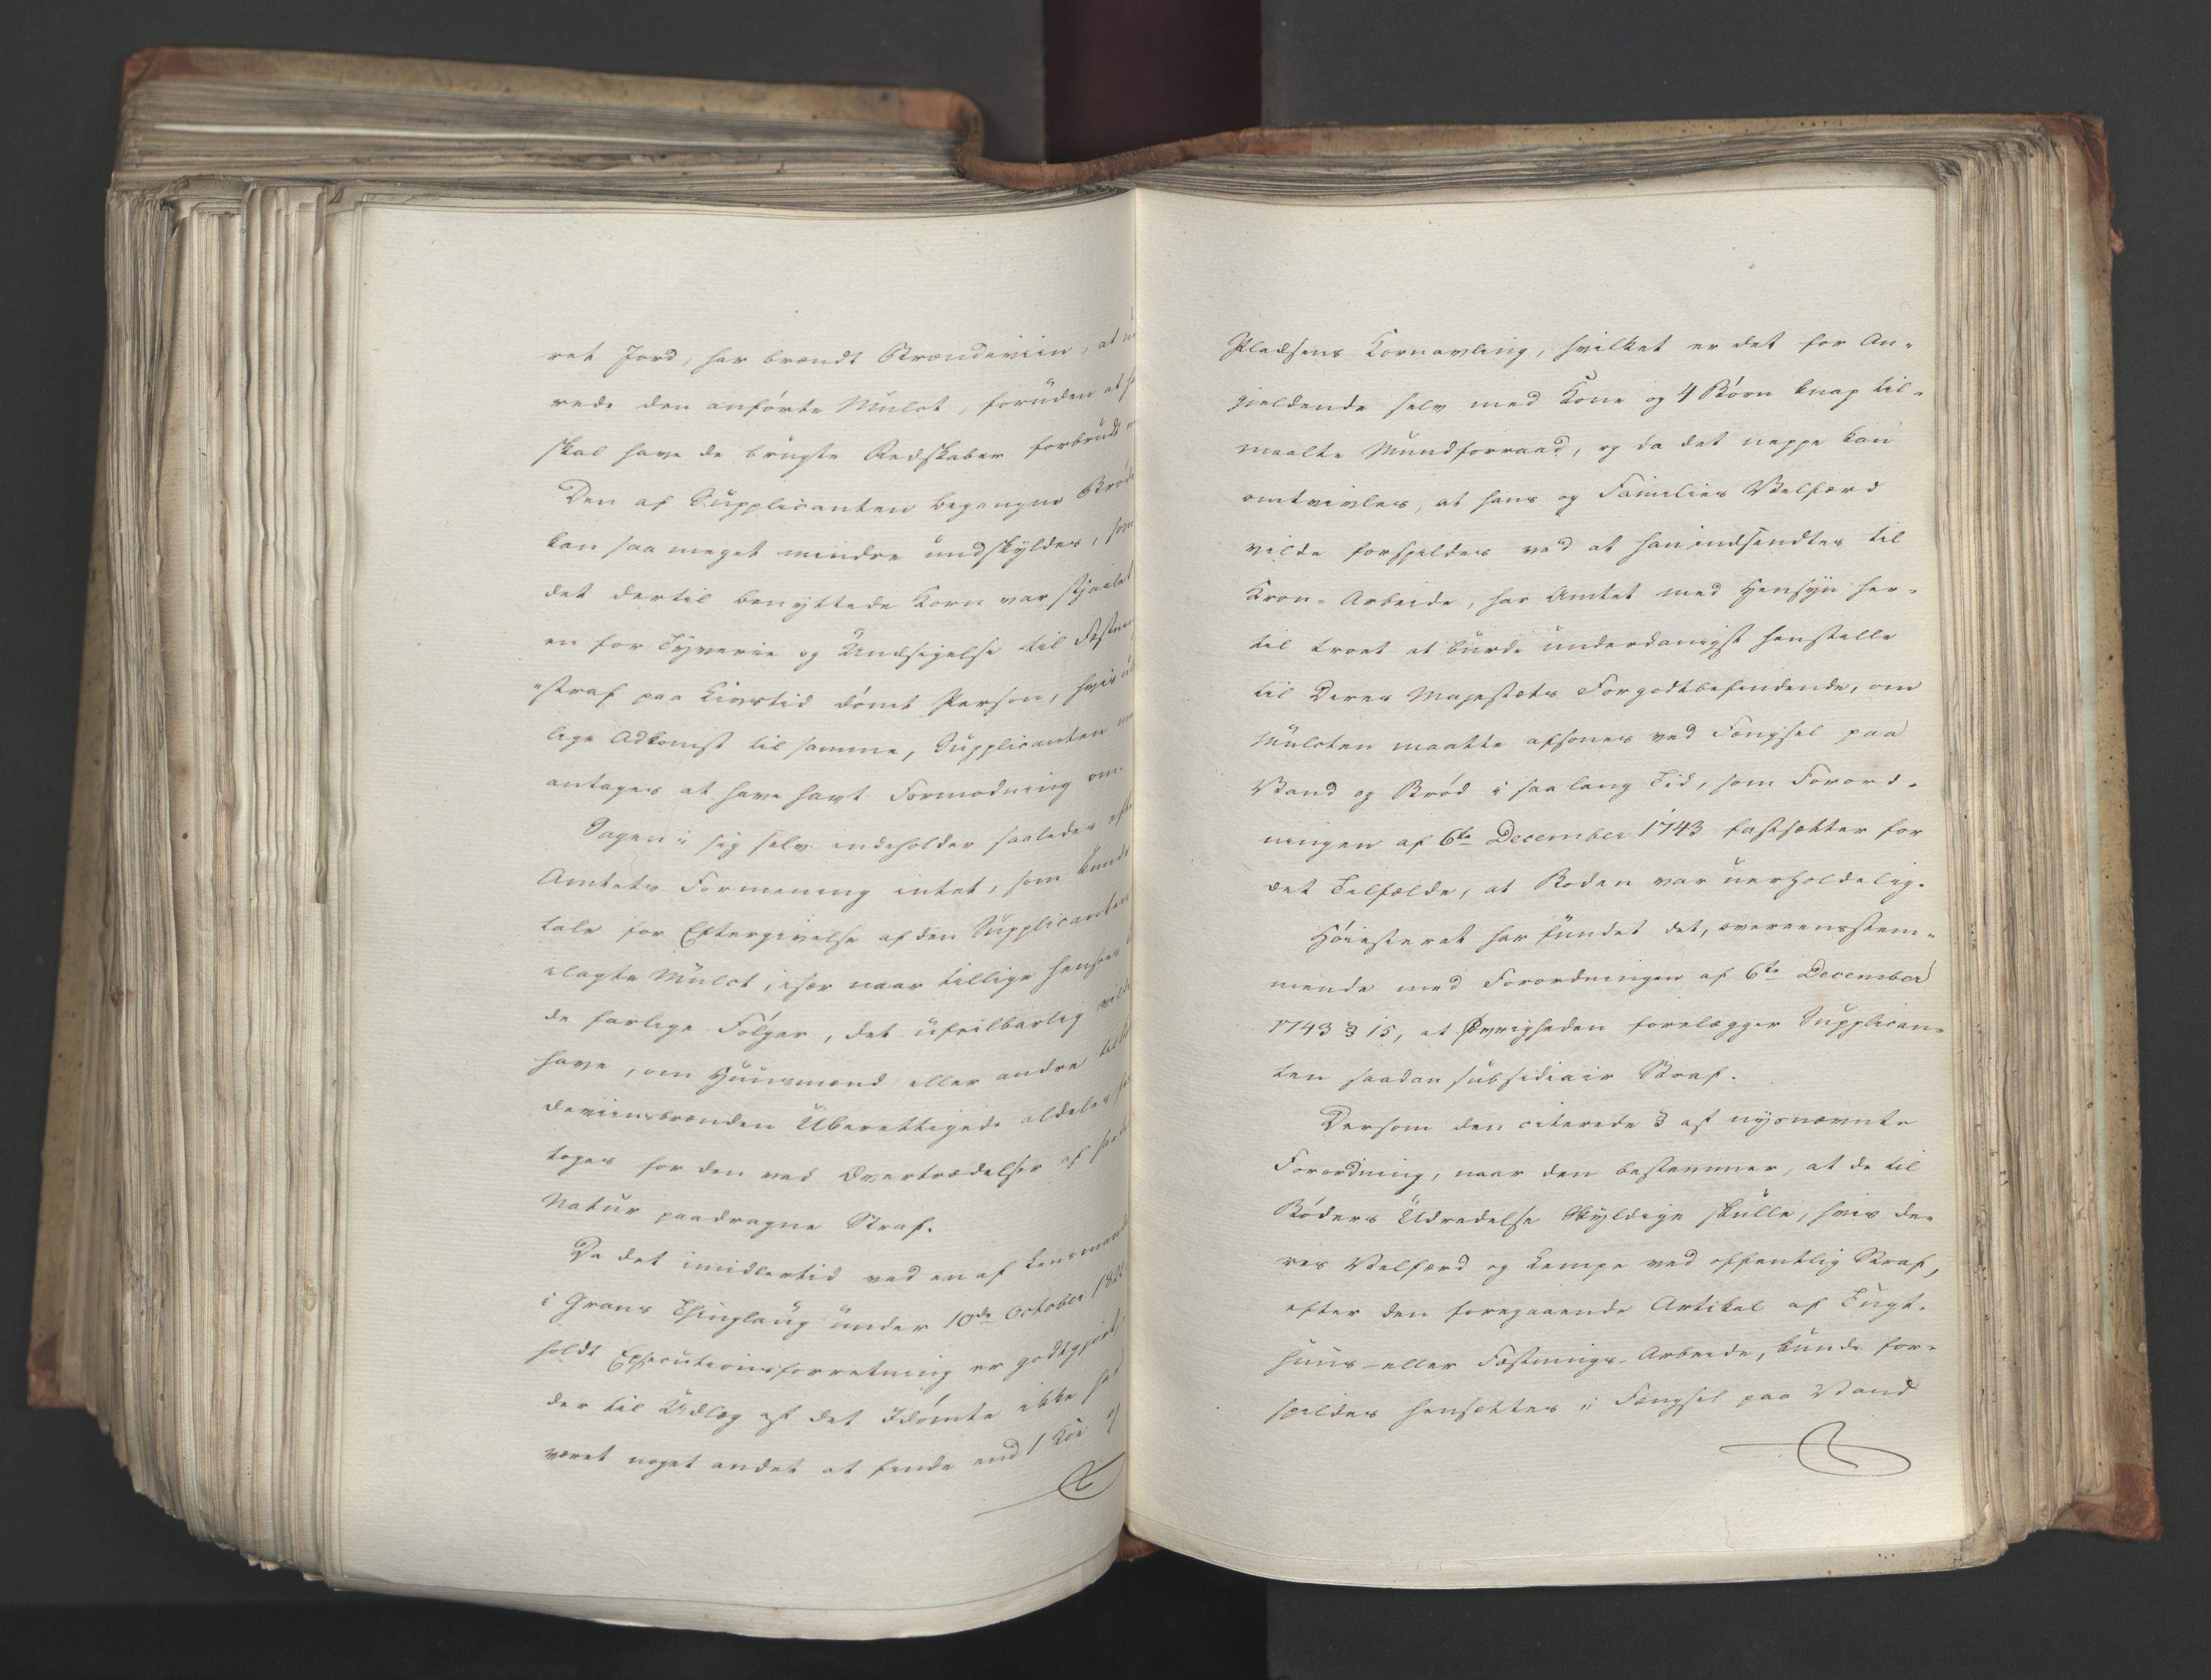 ret Jord, har brændt Brændeviin, at
rede den anførte Mulct, foruden at
skal have de brugte Redskaber forbrudt
Den af Supplicanten begangne Brøde
kan saa meget mindre undskyldes, som
det dertil benyttede Korn var stjaalet
en for Tyverie og Undsigelse til Fæstnings
"straf paa Livstid dømt Person, hvis
lige Adkomst til samme, Supplicanten
antages at have havt Formodning om.
Sagen i sig selv indeholder saaledes efter
Amtets Formening intet, som kunde
tale for Eftergivelse af den Supplicanten
ilagte Mulct, især naar tillige henses
de farlige Følger, det ufeilbarlig vilde
have, om Huusmænd eller andre til
deviinsbrænden Uberettigede aldeles
toges for den ved Overtrædelser af
Natur paadragne Straf.
Da det imidlertid ved en af Lensmand
i Grans Thinglaug under 10de October
holdt Executionsforretning er godtgjort,
der til Udlæg af det Idømte ikke
været noget andet at finde end 1 Koe
Pladsens Kornavling, hvilket er det for An-
gieldende selv med Kone og 4 Børn knap til-
maalte Mundforraad, og da det neppe kan
omtvivles, at hans og Families Velfærd
vilde forspildes ved at han indsendtes til
Kron-Arbeide, har Amtet med Hensyn her-
til troet at burde underdanigst henstille
til Deres Majestæts Forgodtbefindende, om
Mulcten maatte afsones ved Fængsel paa
Vand og Brød i saa lang Tid, som Forord-
ningen af 6te December 1743 fastsætter for
det Tilfælde, at Boden var uerholdelig.
Høiesteret har fundet det, overeensstem-
mende med Forordningen af 6te December
1743 § 15, at Øvrigheden forelægger Supplican-
ten saadan subsidiair Straf.
Dersom den citerede § af nysnævnte
Forordning, naar den bestemmer, at de til
Bøders Udredelse Skyldige skulle, hvis de-
res Velfærd og Lempe ved offentlig Straf,
efter den foregaaende Artikel af Tugt-
huus- eller Fæstnings-Arbeide, kunde for-
spildes hensættes i Fængsel paa Vand